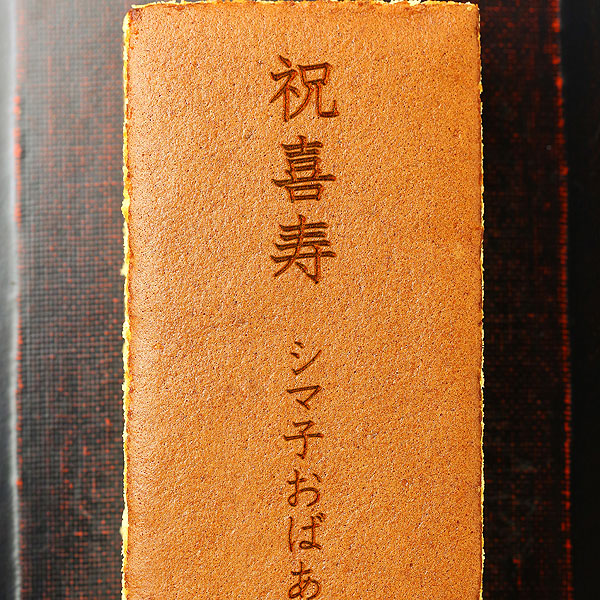 祝喜寿 シマ子おばあ